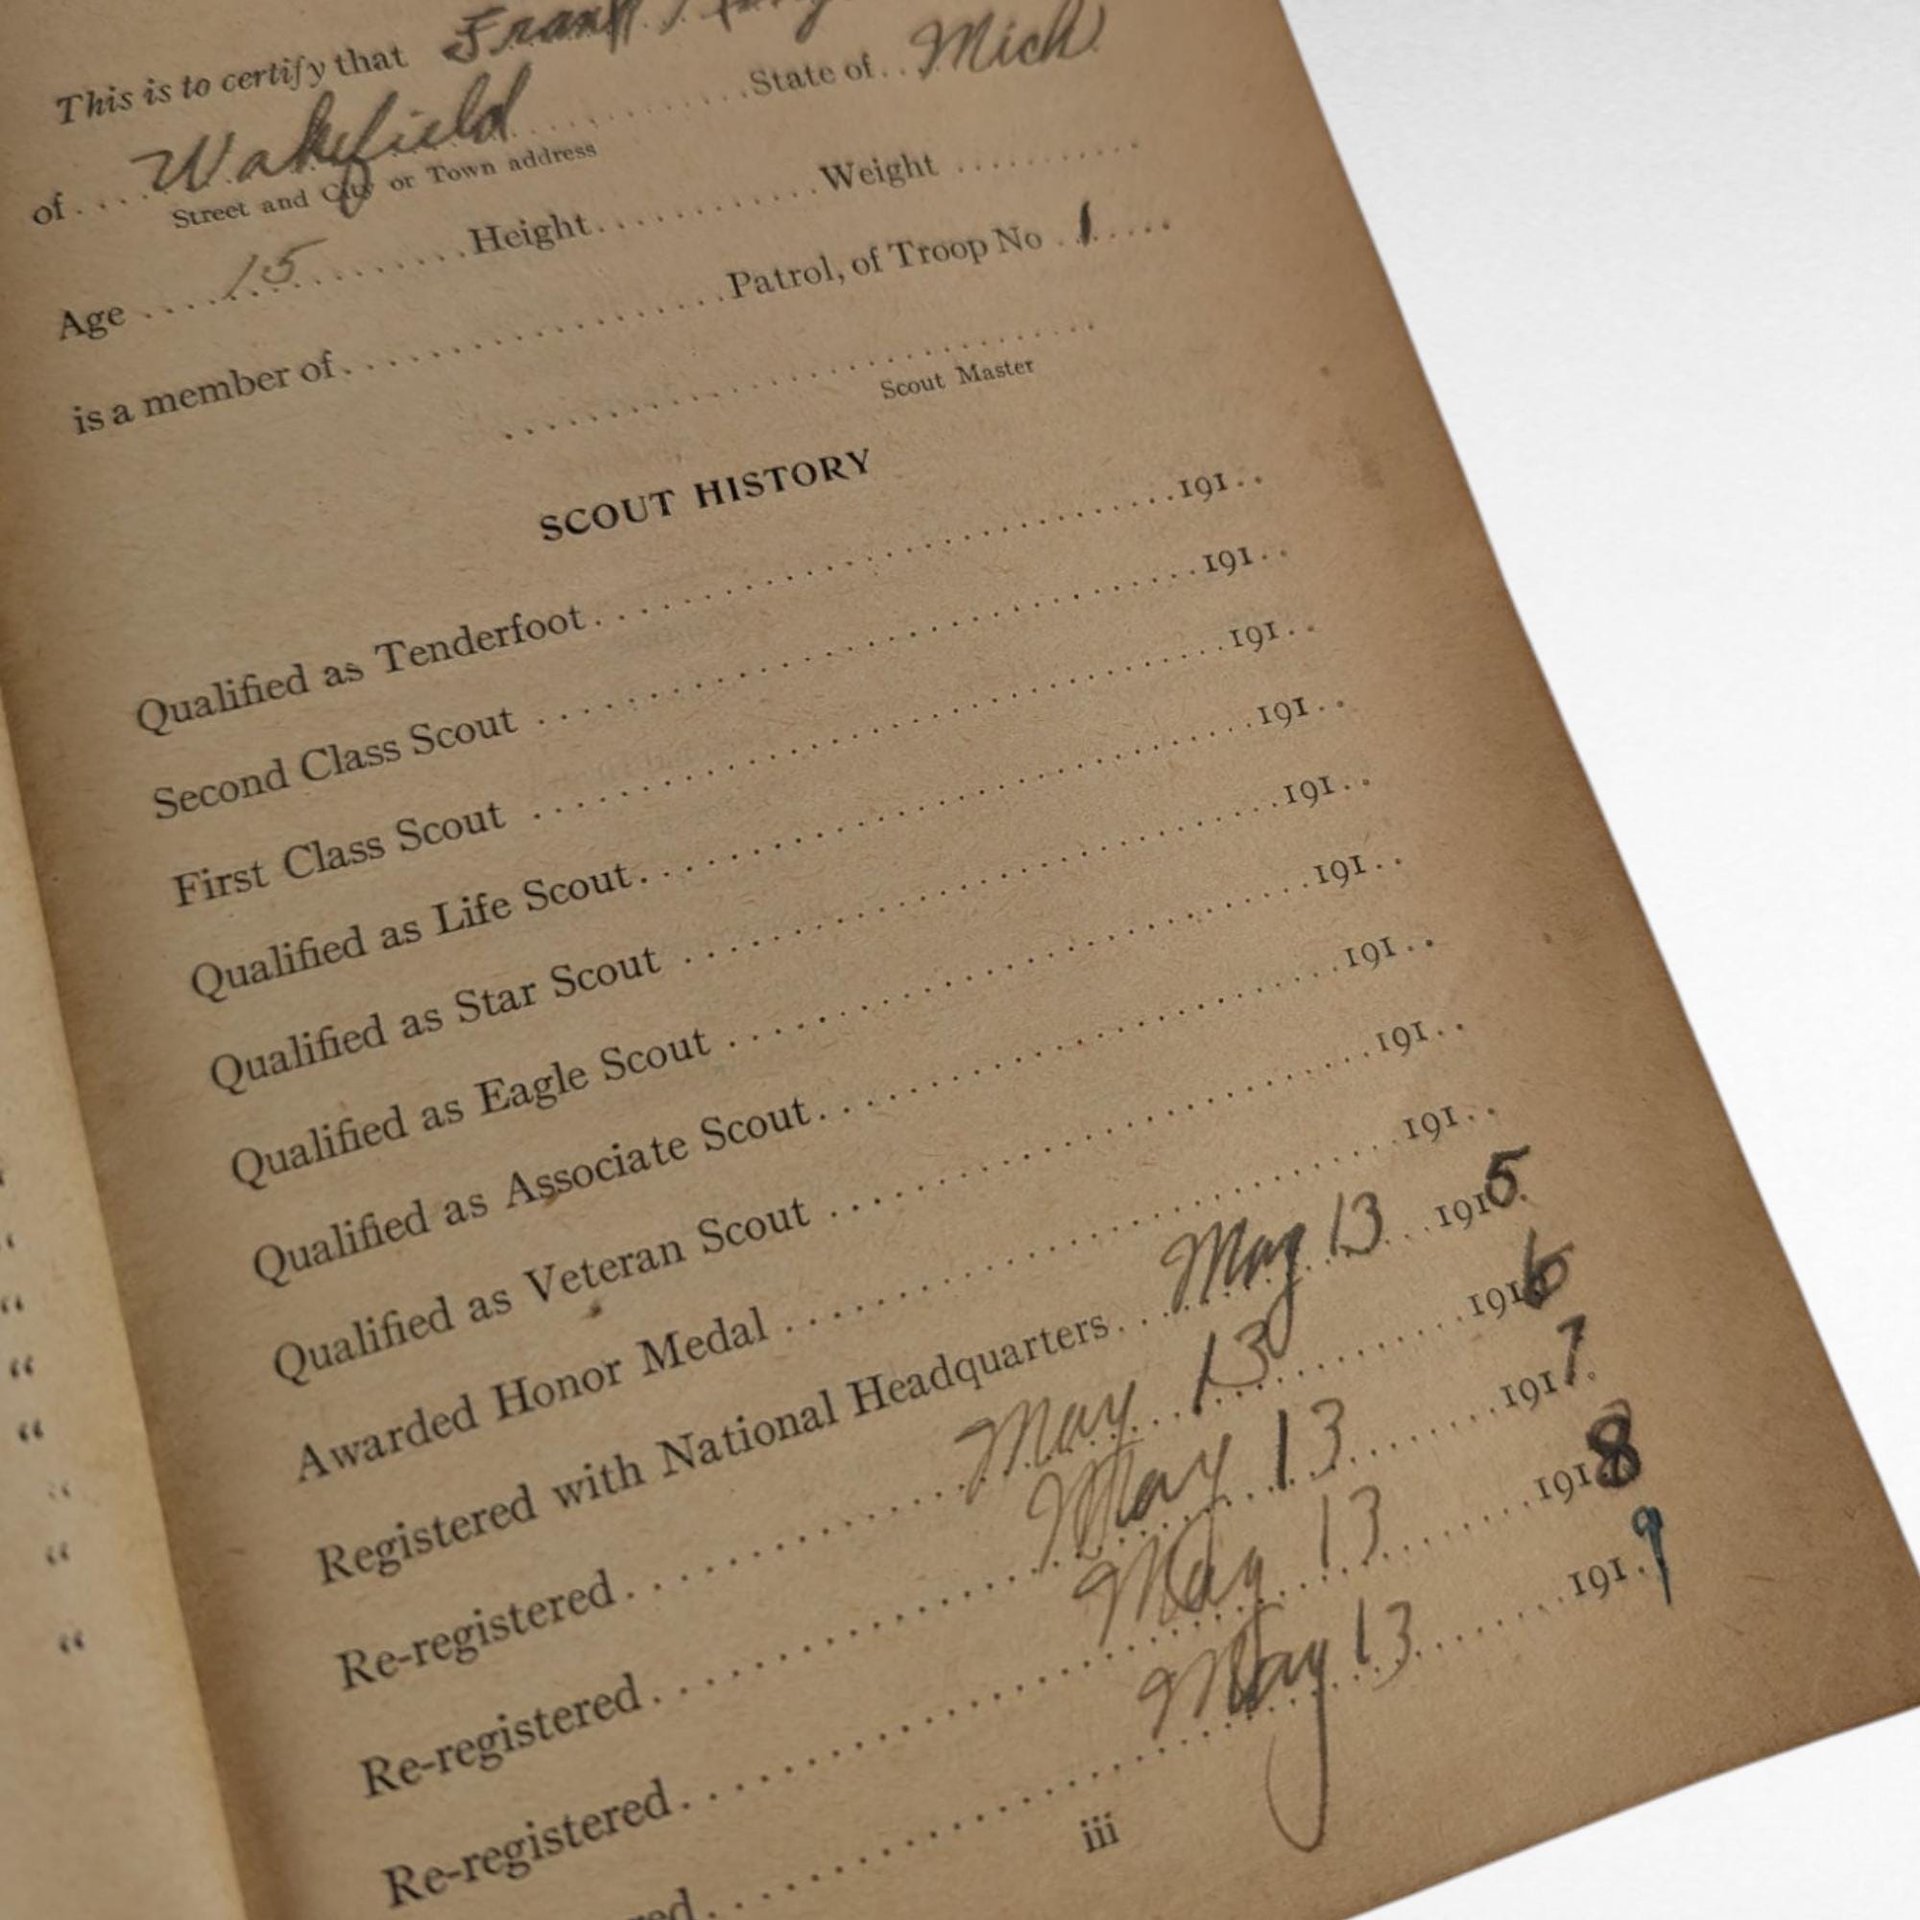 This is to certify that Frank
of.... Wakefield ............State of.. Mich
Street and City or Town address
Age .... 15 .........Height............Weight ...........
is a member of......................Patrol, of Troop No . 1 .....
Scout Master
SCOUT HISTORY
Qualified as Tenderfoot..............................191..
Second Class Scout ..................................191..
First Class Scout ...................................191..
Qualified as Life Scout..............................191..
Qualified as Star Scout .............................191..
Qualified as Eagle Scout ............................191..
Qualified as Associate Scout.........................191..
Qualified as Veteran Scout ..........................191..
Awarded Honor Medal .................................191..
Registered with National Headquarters... May 13 ..1915.
Re-registered................ May 13 ..........1916
Re-registered................ May 13 ..........1917.
Re-registered................ May 13 ..........1918
red................ May 13 ..........191.9
iii
“
“
“
“
“
“